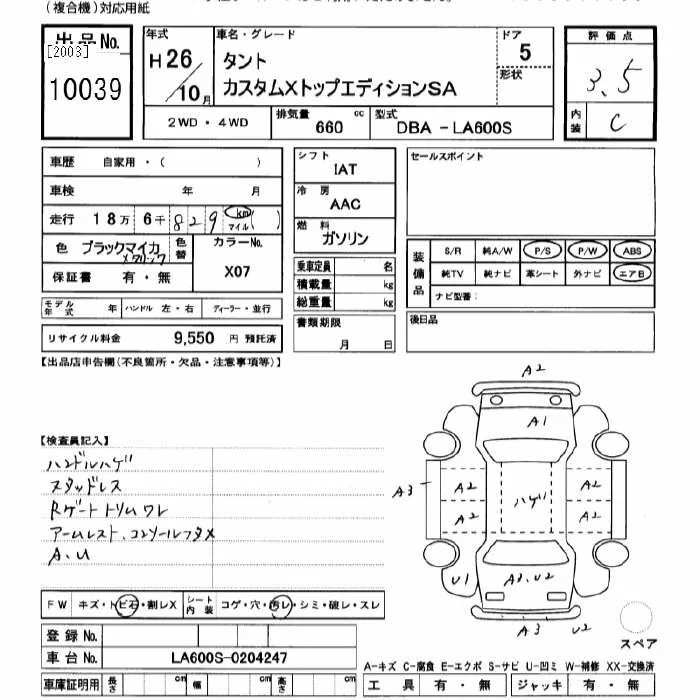 (複合機)対応用紙
出品No.
[2003]
10039
年式
H26/10月
車名・グレード
タント
カスタムXトップエディションSA
ドア
5
形状
評価点
3.5
内装
C
2WD・4WD
排気量 660 cc
型式 DBA－LA600S
車歴 自家用・( )
車検 年 月
走行 18万 6千 829 km マイル ( )
色 ブラックマイカメタリック
色替
カラーNo.
X07
保証書 有・無
モデル年式 年 ハンドル 左・右 ディーラー・並行
リサイクル料金 9,550 円 預託済
シフト
IAT
冷房
AAC
燃料
ガソリン
乗車定員 名
積載量 kg
総重量 kg
書類期限
月 日
セールスポイント
装備品
S/R 純A/W P/S P/W ABS
純TV 純ナビ 革シート 外ナビ エアB
ナビ型番:
後日品
【出品店申告欄(不良箇所・欠品・注意事項等)】
【検査員記入】
ハンドルハゲ
スタッドレス
Rゲートトリムワレ
アームレスト、コンソールフタメ
A、U
A2
A1
A3
A2
A2
A2
A2
ハゲ
U1
A2、U2
A3
U2
スペア
FW キズ・トビ石・割レX
シート内装 コゲ・穴・汚レ・シミ・破レ・スレ
登録No.
車台No. LA600S-0204247
車庫証明用 長さ cm 幅 cm 高さ cm
A-キズ C-腐食 E-エクボ S-サビ U-凹ミ W-補修 XX-交換済
工具 有・無 ジャッキ 有・無